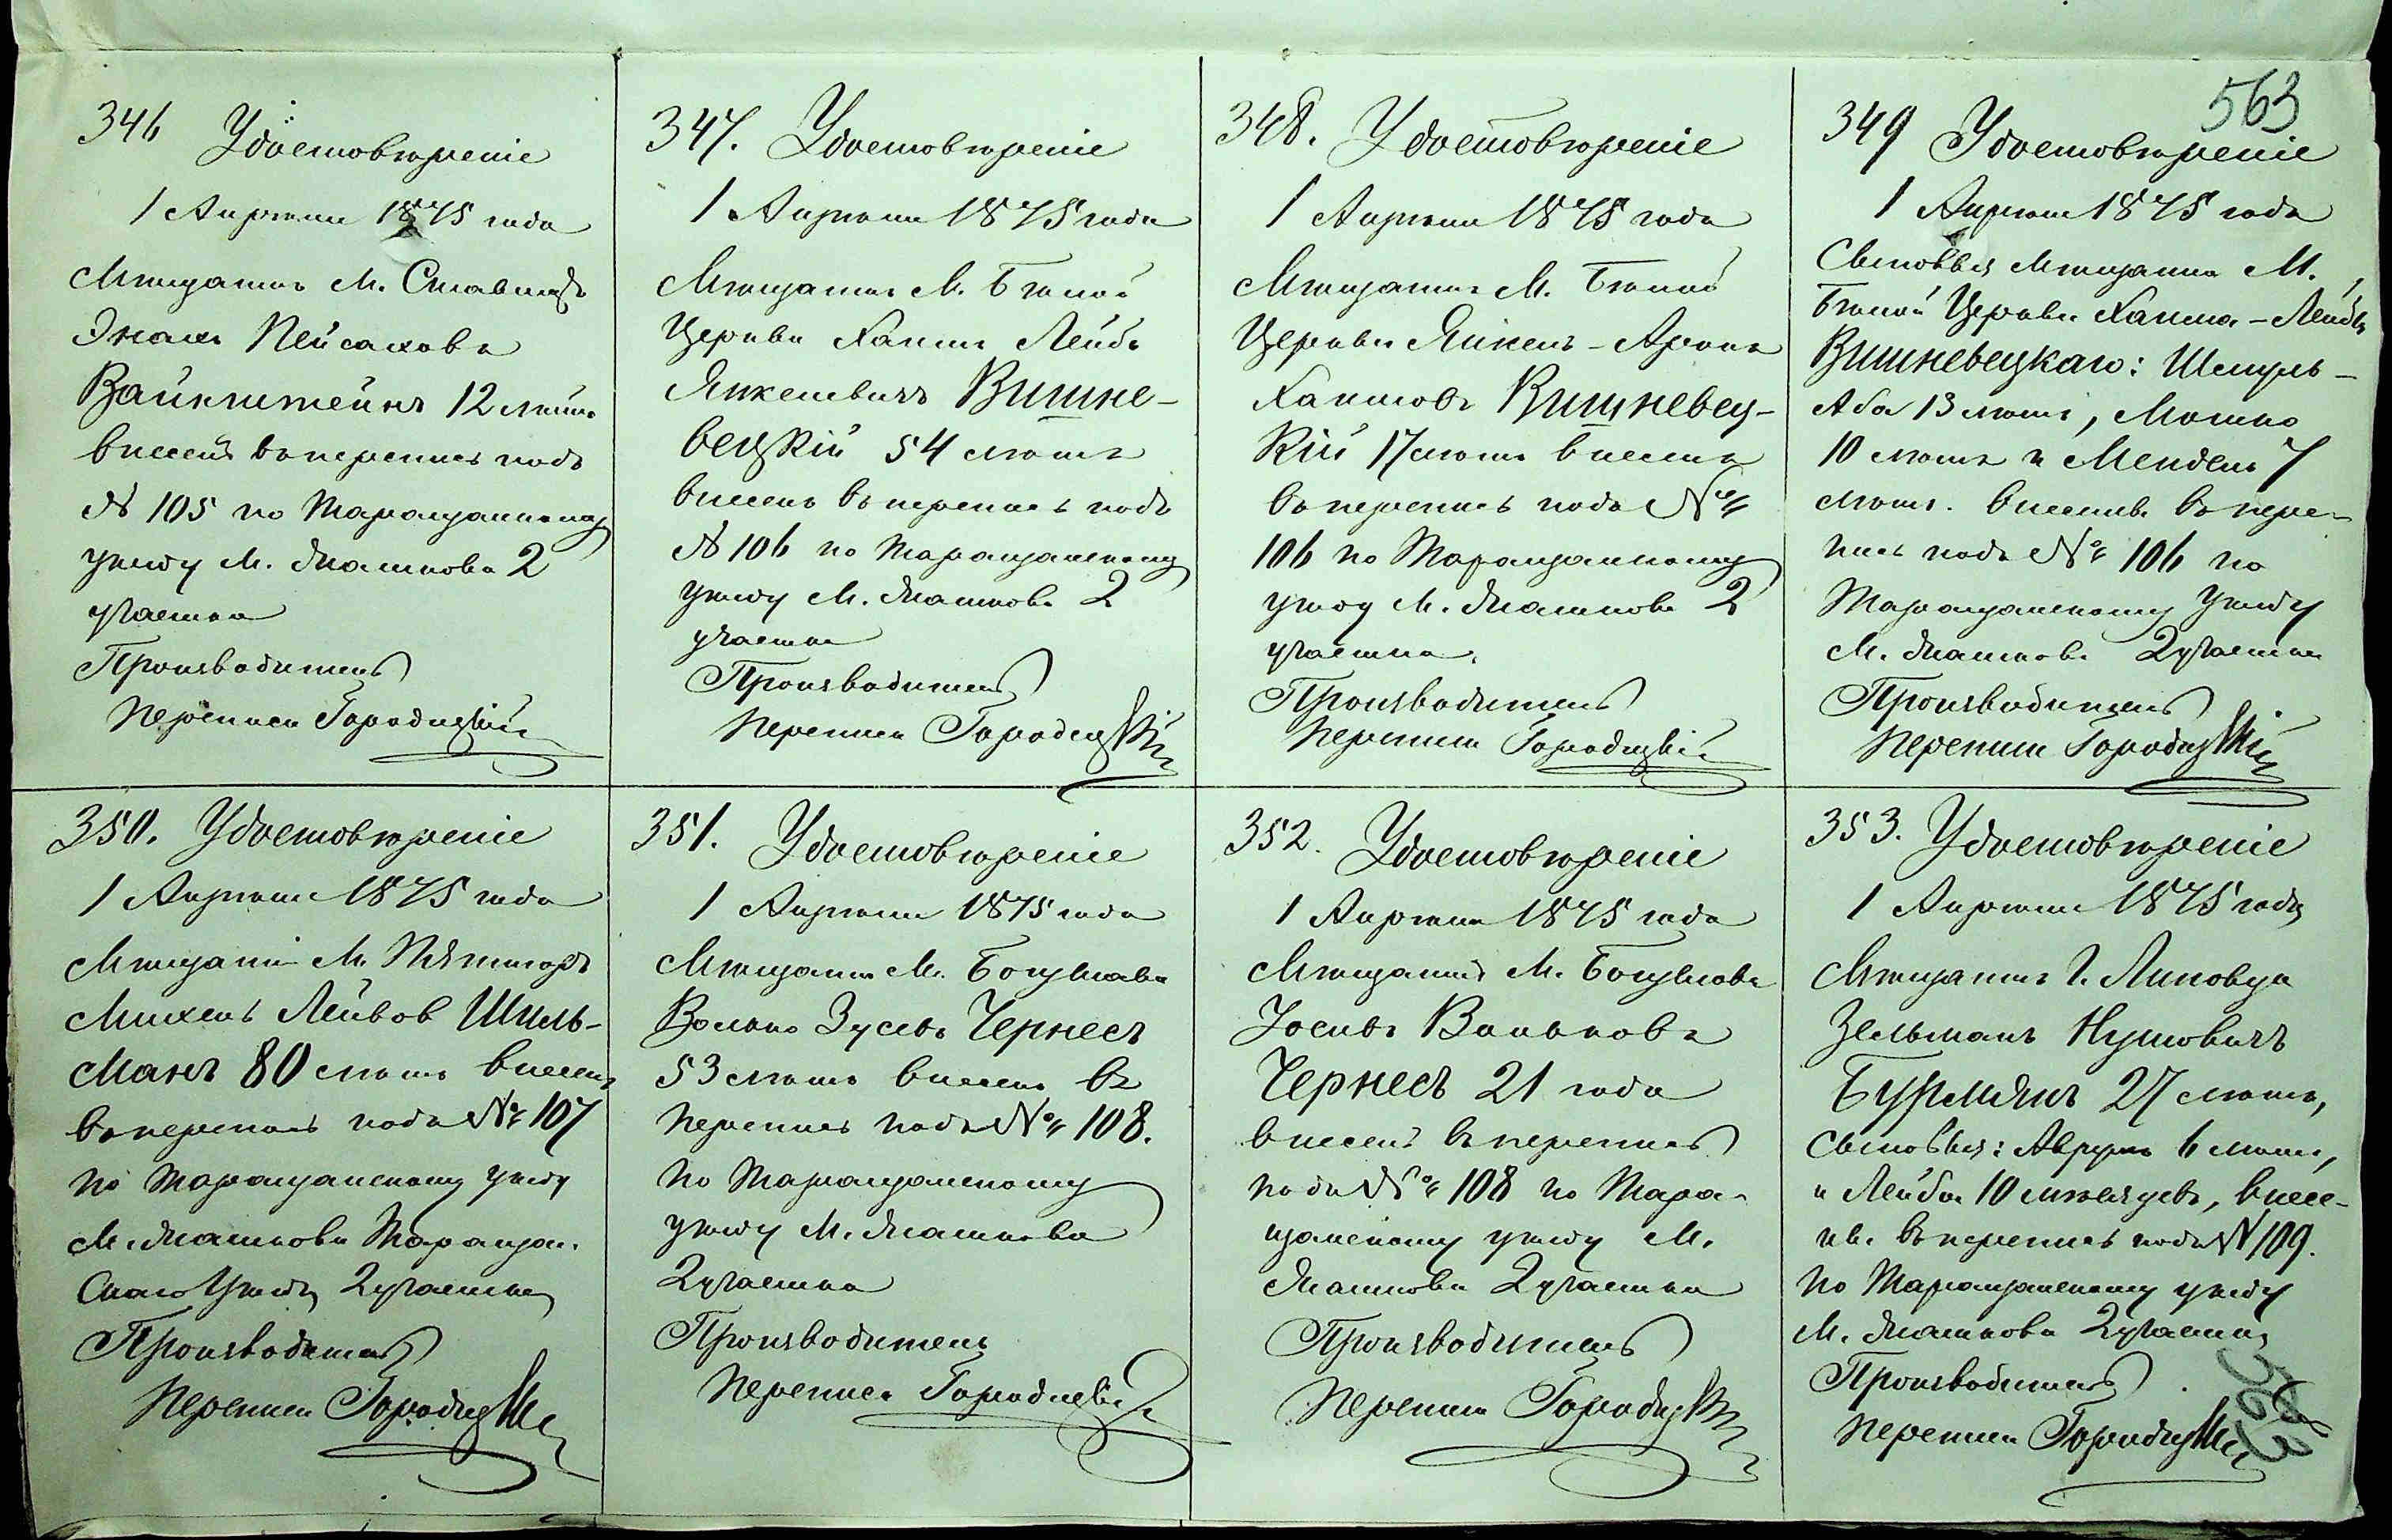 563
346 Удостовѣреніе
1 Апрѣля 1875 года
Мѣщанинъ М. Ставищъ
Пейсаховъ
Вайнштейнъ 12 лѣтъ
внесенъ въ перепись подъ
№ 105 по Таращанскому
уѣзду М. Лашкова 2
участка
Производитель
переписи Городецкій
347. Удостовѣреніе
1 Апрѣля 1875 года
Мѣщанинъ М. Бѣлой
Церкви Хаимъ Лейбъ
Янкелевичъ Вишне-
вецкій 54 лѣтъ
внесенъ въ перепись подъ
№ 106 по Таращанскому
уѣзду М. Лашкова 2
участка
Производитель
переписи Городецкій
348. Удостовѣреніе
1 Апрѣля 1875 года
Мѣщанинъ М. Бѣлой
Церкви Янкель-Аронъ
Хаимовъ Вишневец-
кій 17 лѣтъ внесенъ
въ перепись подъ №
106 по Таращанскому
уѣзду М. Лашкова 2
участка.
Производитель
переписи Городецкій
349 Удостовѣреніе
1 Апрѣля 1875 года
Сыновья Мѣщанина М.
Бѣлой Церкви Хаима-Лейбы
Вишневецкаго: Шмуль-
Аба 13 лѣтъ, Мошко
10 лѣтъ и Мендель 7
лѣтъ. внесены въ пере-
пись подъ № 106 по
Таращанскому уѣзду
М. Лашкова 2 участка
Производитель
переписи Городецкій
350. Удостовѣреніе
1 Апрѣля 1875 года
Мѣщанинъ М. Пятигоръ
Михель Лейбов Шиль-
манъ 80 лѣтъ внесенъ
въ перепись подъ № 107
по Таращанскому уѣзду
М. Лашкова Таращан.
скаго уѣзда 2 участка
Производитель
переписи Городецкій
351. Удостовѣреніе
1 Апрѣля 1875 года
Мѣщанинъ М. Богуслава
Волько Зусевъ Чернесъ
53 лѣтъ внесенъ въ
перепись подъ № 108.
по Таращанскому
уѣзду М. Лашкова
2 участка
Производитель
переписи Городецкій
352. Удостовѣреніе
1 Апрѣля 1875 года
Мѣщанинъ М. Богуслава
Іосифъ Вольковъ
Чернесъ 21 года
внесенъ въ перепись
подъ № 108 по Тара-
щанскому уѣзду М.
Лашкова 2 участка
Производитель
переписи Городецкій
353. Удостовѣреніе
1 Апрѣля 1875 года
Мѣщанинъ г. Липовца
Зельманъ Нутовичъ
Бурманъ 27 лѣтъ,
сыновья: Аврумъ 6 лѣтъ,
и Лейба 10 мѣсяцевъ, внесе-
ны въ перепись подъ № 109.
по Таращанскому уѣзду
М. Лашкова 2 участка
Производитель
переписи Городецкій
563